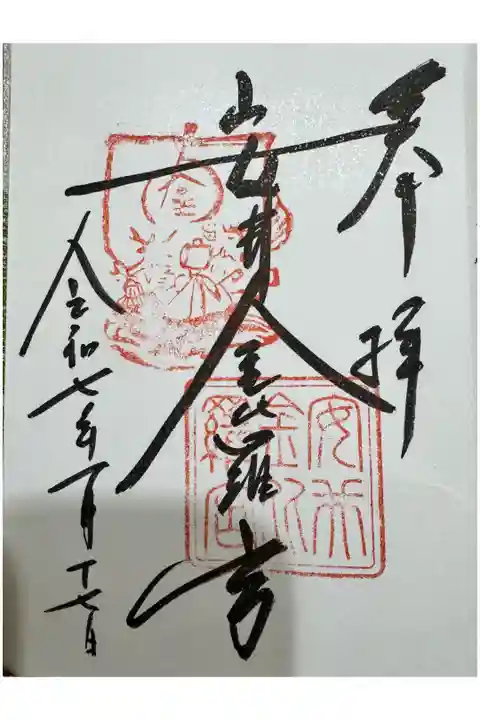 奉拝
安井金比羅宮
令和七年一月十七日
安井
金比
羅宮